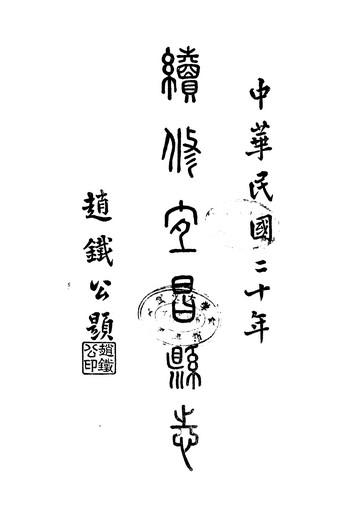 中華民國二十年
續修宜昌縣志
趙鐵公題
趙鐵
公印